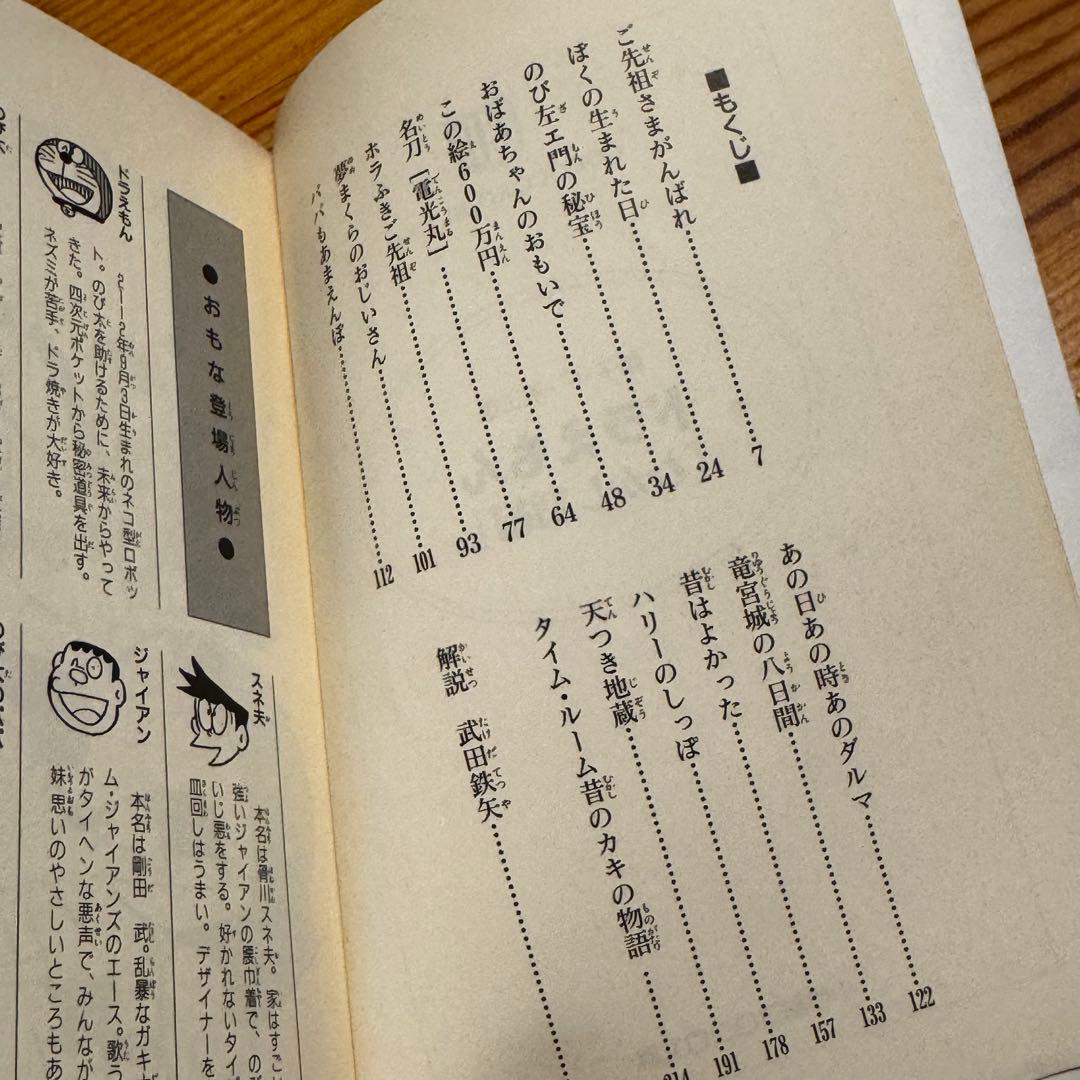 ■もくじ■
ご先祖さまがんばれ……7
ぼくの生まれた日……24
のび左エ門の秘宝……34
おばあちゃんのおもいで……48
この絵600万円……64
名刀「電光丸」……77
ホラふきご先祖……93
夢まくらのおじいさん……101
パパもあまえんぼ……112
あの日あの時あのダルマ……122
竜宮城の八日間……133
昔はよかった……157
ハリーのしっぽ……178
天つき地蔵……191
タイム・ルーム昔のカキの物語……214
解説 武田鉄矢……
●おもな登場人物●
ドラえもん
二一一二年九月三日生まれのネコ型ロボッ
ト。のび太を助けるために、未来からやって
きた。四次元ポケットから秘密道具を出す。
ネズミが苦手、ドラ焼きが大好き。
スネ夫
本名は骨川スネ夫。家はすご
強いジャイアンの腰巾着で、の
いじ悪をする。好かれないタイプ
皿回しはうまい。デザイナーを
ジャイアン
本名は剛田 武。乱暴なガキ
ム・ジャイアンズのエース。歌う
がタイヘンな悪声で、みんなが
妹思いのやさしいところもあ